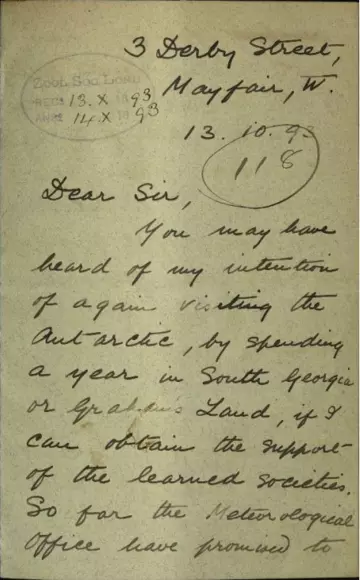 3 Derby Street,
Mayfair, W.
ZOOL. SOC. LOND
REC: 13.X 1893
ANS: 14.X 1893
13.10.93
118
Dear Sir,
You may have
heard of my intention
of again visiting the
Antarctic, by spending
a year in South Georgia
or Graham's Land, if I
can obtain the support
of the learned societies.
So far the Meteorological
Office have promised to